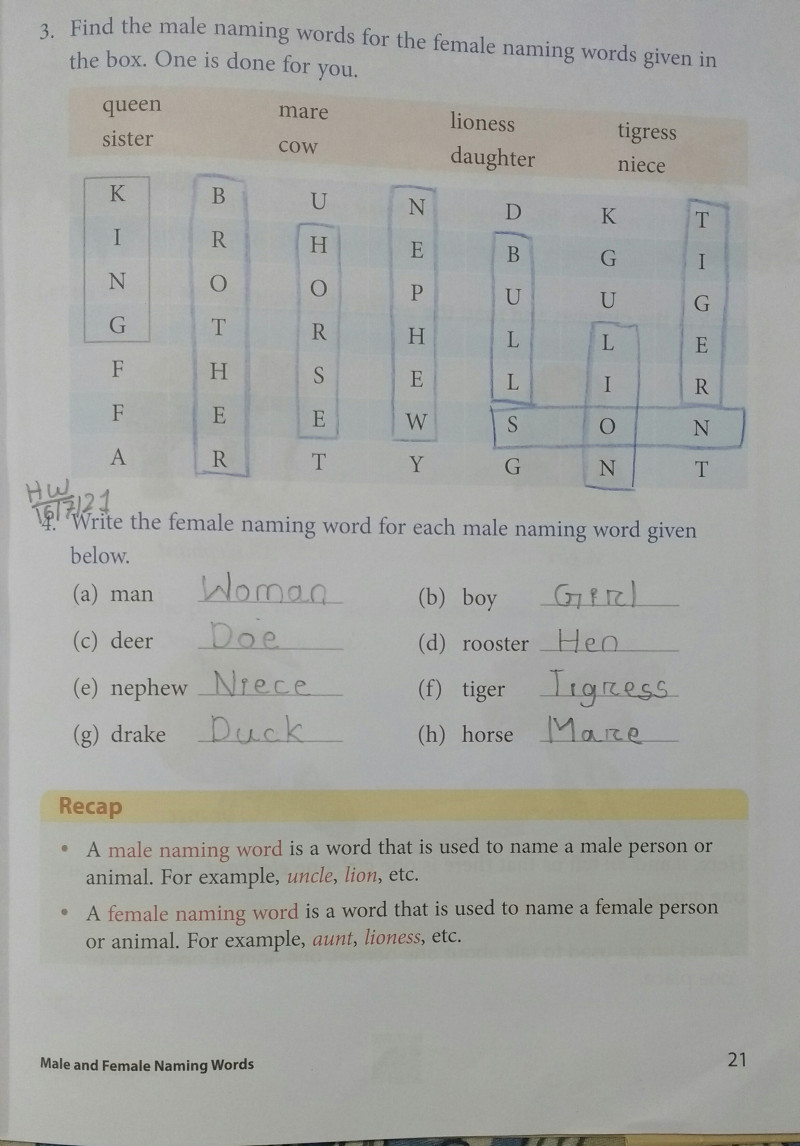 3. Find the male naming words for the female naming words given in
the box. One is done for you.
queen mare lioness tigress
sister cow daughter niece
K B U N D K T
I R H E B G I
N O O P U U G
G T R H L L E
F H S E L I R
F E E W S O N
A R T Y G N T
HW
16/7/21
4. Write the female naming word for each male naming word given
below.
(a) man Woman (b) boy Girl
(c) deer Doe (d) rooster Hen
(e) nephew Niece (f) tiger Tigress
(g) drake Duck (h) horse Mare
Recap
• A male naming word is a word that is used to name a male person or
animal. For example, uncle, lion, etc.
• A female naming word is a word that is used to name a female person
or animal. For example, aunt, lioness, etc.
Male and Female Naming Words 21